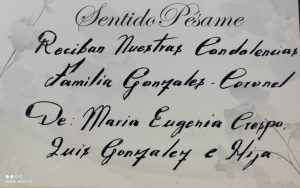 Sentido Pésame
Reciban Nuestras Condolencias
Familia Gonzales - Coronel
De: Maria Eugenia Crespo,
Luis Gonzalez e Hija